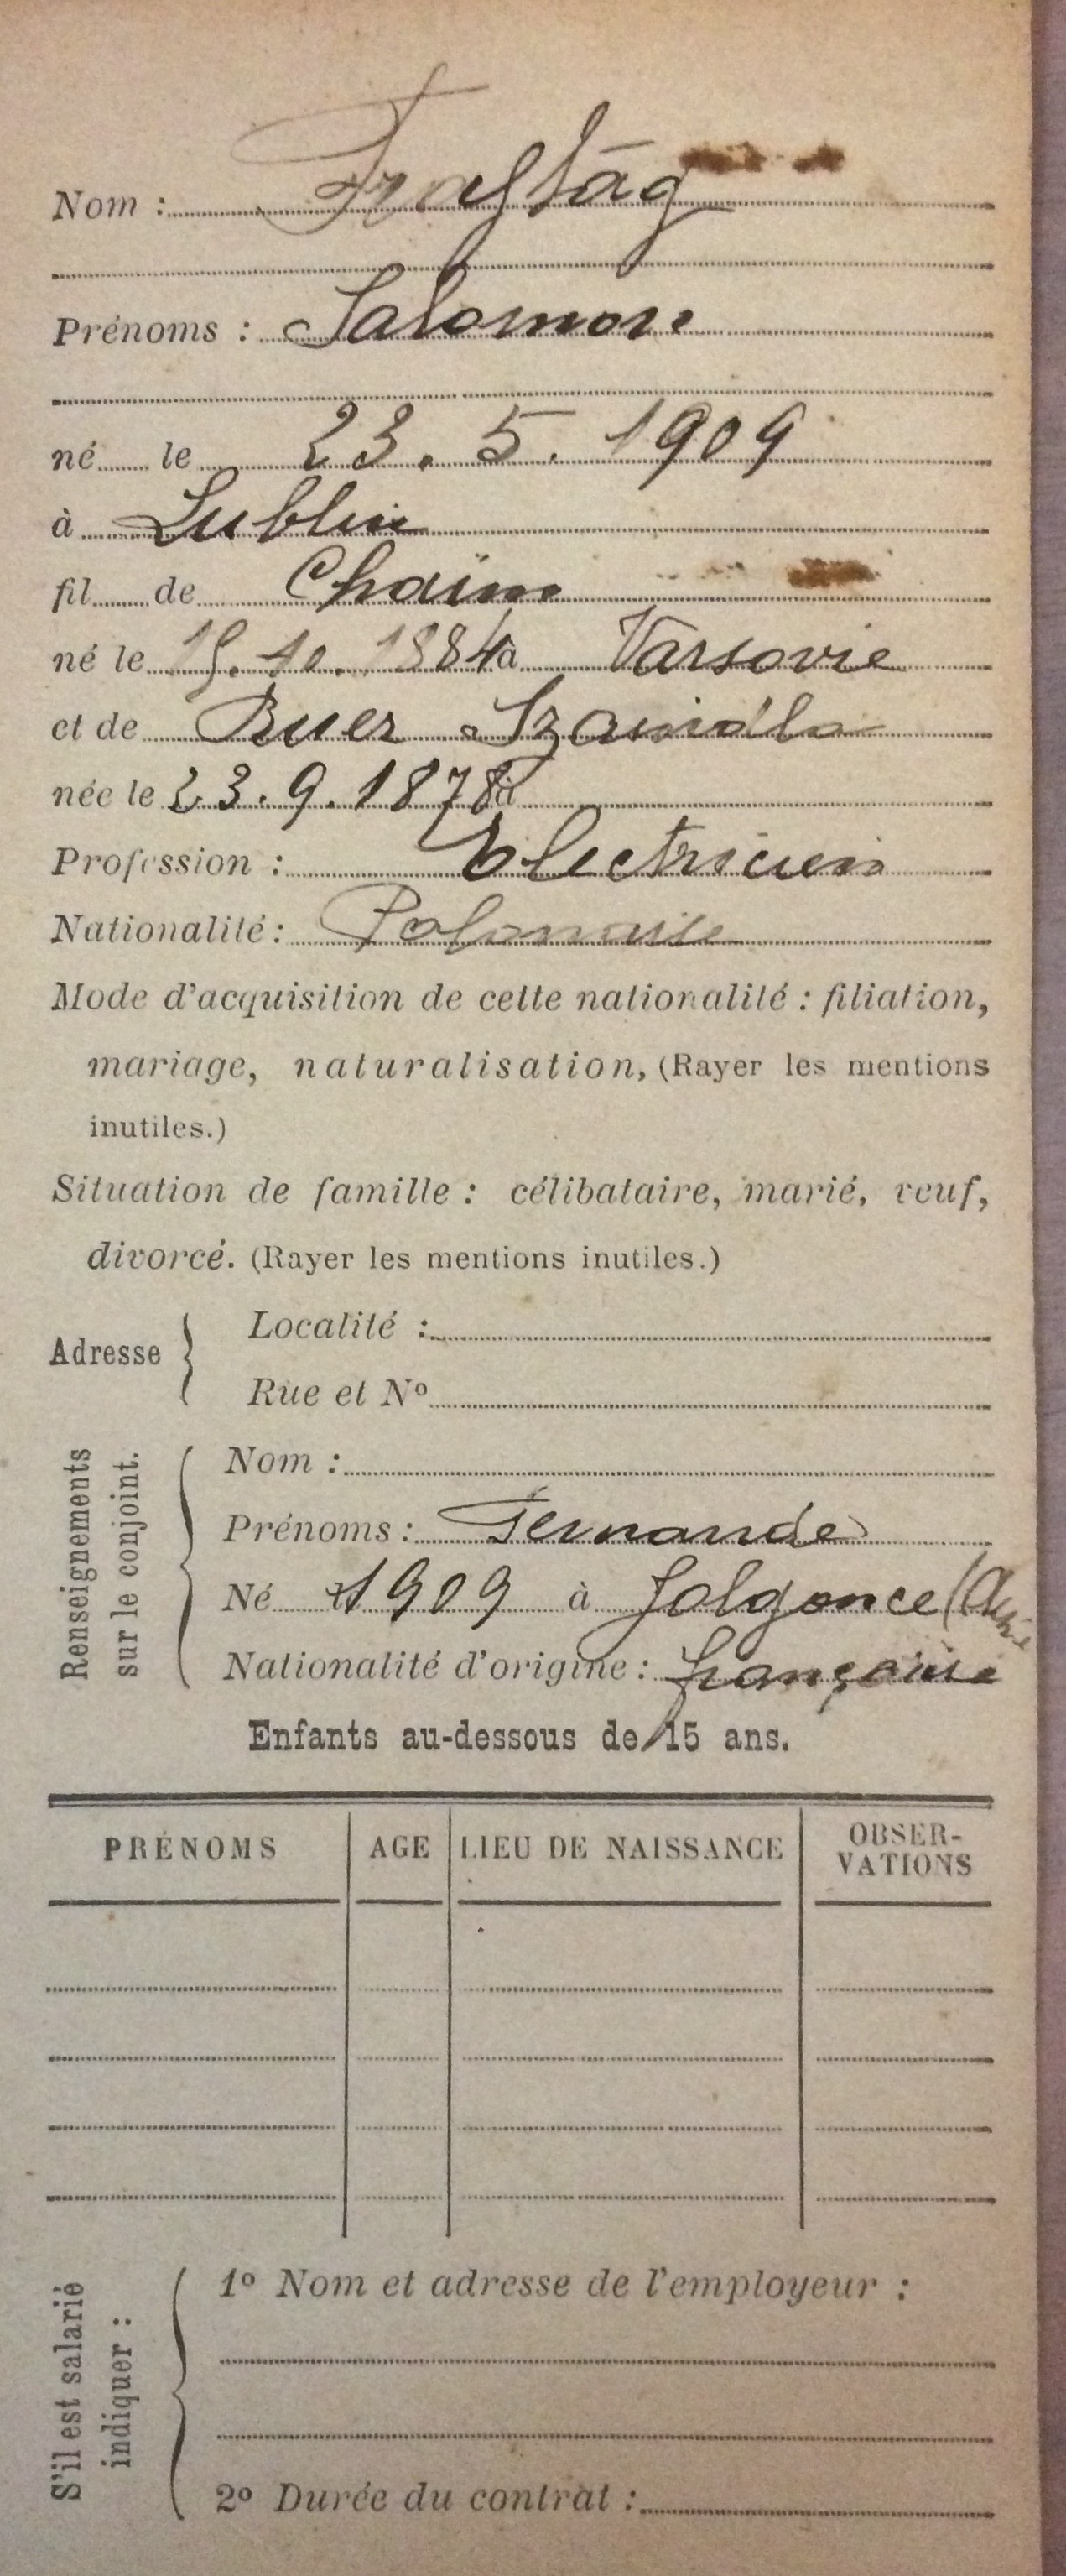 Nom : Fraftag
Prénoms : Salomon
né le 23. 5. 1909
à Lublin
fil de Chaïm
né le 15. 10. 1884 à Varsovie
et de Ruer
née le 23. 9. 1878 à
Profession : Electricien
Nationalité : Polonaise
Mode d'acquisition de cette nationalité : filiation,
mariage, naturalisation, (Rayer les mentions
inutiles.)
Situation de famille : célibataire, marié, veuf,
divorcé. (Rayer les mentions inutiles.)
Adresse
Localité :
Rue et Nº
Renseignements
sur le conjoint.
Nom :
Prénoms : Fernande
Né 1909 à Jolgonce
Nationalité d'origine : française
Enfants au-dessous de 15 ans.
PRÉNOMS AGE LIEU DE NAISSANCE OBSER-
VATIONS
S'il est salarié
indiquer :
1º Nom et adresse de l'employeur :
2º Durée du contrat :